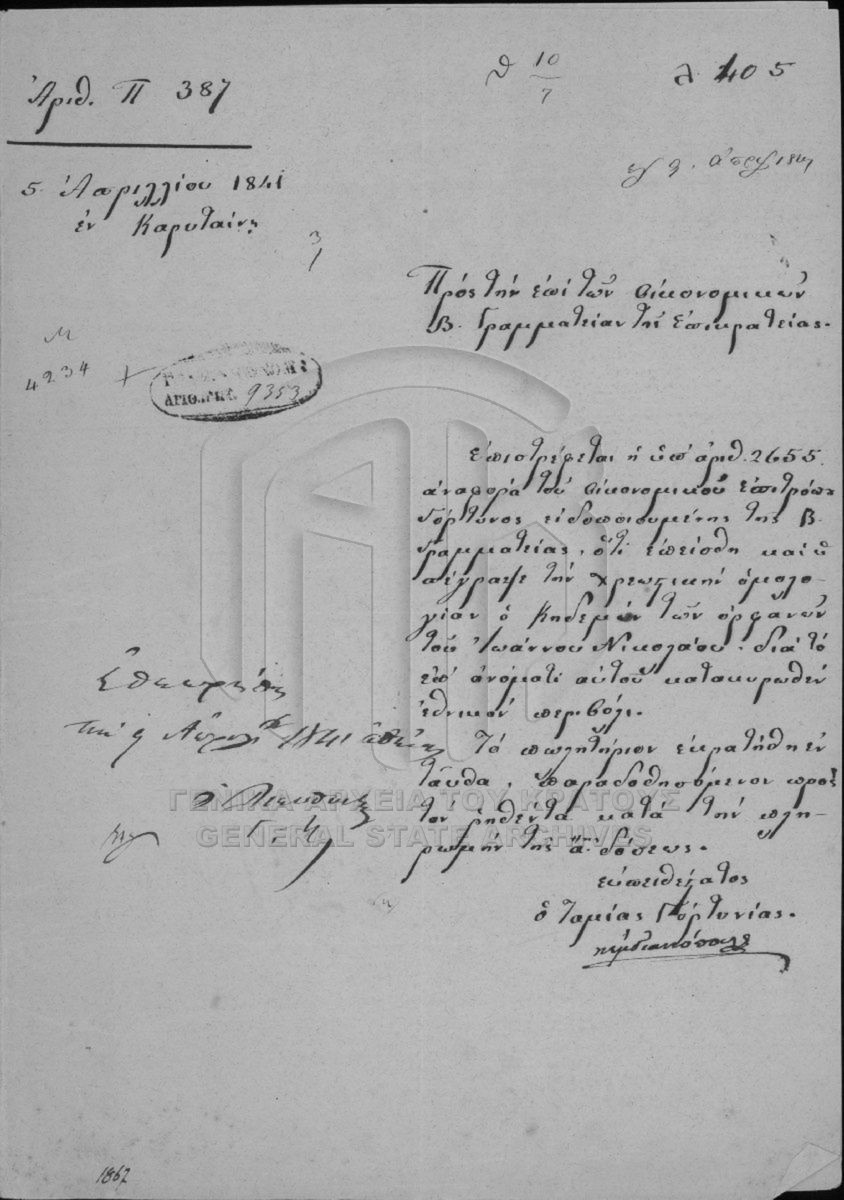 Ἀριθ. Π 387
θ 10/7
λ 405
5 Ἀπριλλίου 1841
ἐν Καρυταίνῃ
3
Πρὸς τὴν ἐπὶ τῶν Οἰκονομικῶν
Β. Γραμματείαν τῆς Ἐπικρατείας.
4234
ΑΡΙΘ. 9353
Ἐπιστρέφεται ἡ ὑπ' ἀριθ. 2655
ἀναφορὰ τοῦ Οἰκονομικοῦ Ἐπιτρόπου
Γόρτυνος εἰδοποιουμένης τῆς Β.
Γραμματείας, ὅτι ἐπείσθη καὶ ὑ
πέγραψε τὴν χρεωτικὴν ὁμολο-
γίαν ὁ Κηδεμὼν τῶν ὀρφανῶν
τοῦ Ἰωάννου Νικολάου διὰ τὸ
ἐπ' ὀνόματι αὐτοῦ κατακυρωθὲν
ἐθνικὸν περιβόλι.
Τὸ πωλητήριον ἐκρατήθη ἐν
ταῦθα, παραδοθησόμενον πρὸς
τὸν ῥηθέντα κατὰ τὴν πλη-
ρωμὴν τῆς α. δόσεως.
εὐπειθέστατος
ὁ Ταμίας Γορτυνίας.
Ἐθεωρήθη
τὴν 9 1841
ΓΕΝΙΚΑ ΑΡΧΕΙΑ ΤΟΥ ΚΡΑΤΟΥΣ
GENERAL STATE ARCHIVES
1867